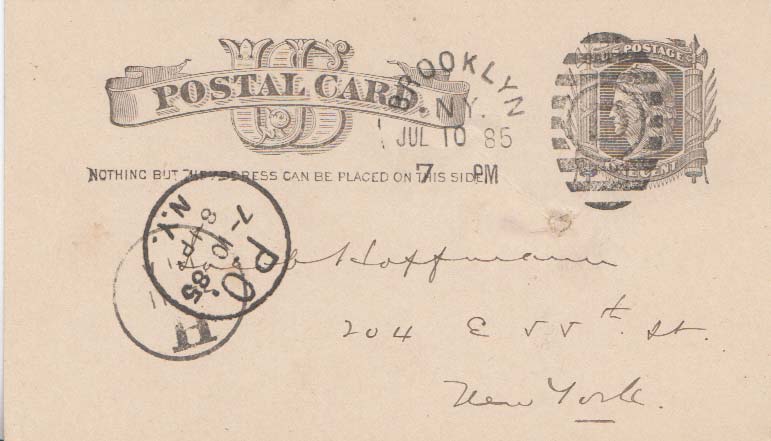 U.S. POSTAGE
POSTAL CARD.
BROOKLYN
N.Y.
JUL 10 85
7 PM
ONE CENT
NOTHING BUT THE ADDRESS CAN BE PLACED ON THIS SIDE
P.O.
N.Y.
7-10
85
8 P
H
Hoffmann
204 E 55th St.
New York.